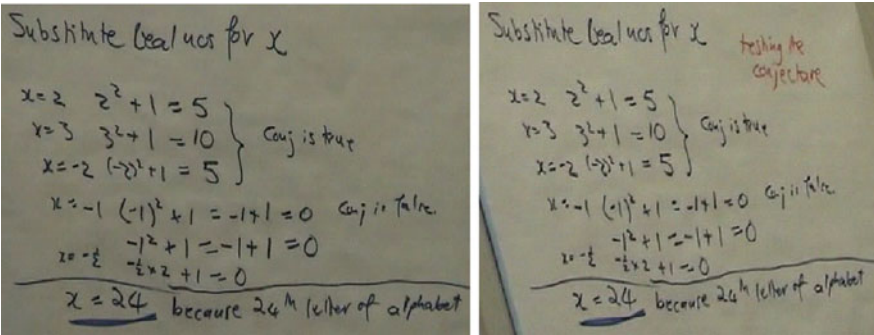 Substitute values for x
x=2 2² + 1 = 5
x=3 3² + 1 = 10
x=-2 (-2)² + 1 = 5
Conj is true
x=-1 (-1)² + 1 = -1+1 = 0 Conj is false.
-1² + 1 = -1 + 1 = 0
x=-½ -½×2 + 1 = 0
x = 24 because 24th letter of alphabet
Substitute values for x
testing the
conjecture
x=2 2² + 1 = 5
x=3 3² + 1 = 10
x=-2 (-2)² + 1 = 5
Conj is true
x=-1 (-1)² + 1 = -1+1=0 Conj is false.
-1² + 1 = -1 + 1 = 0
x=-½ -½×2 + 1 = 0
x = 24 because 24th letter of alphabet